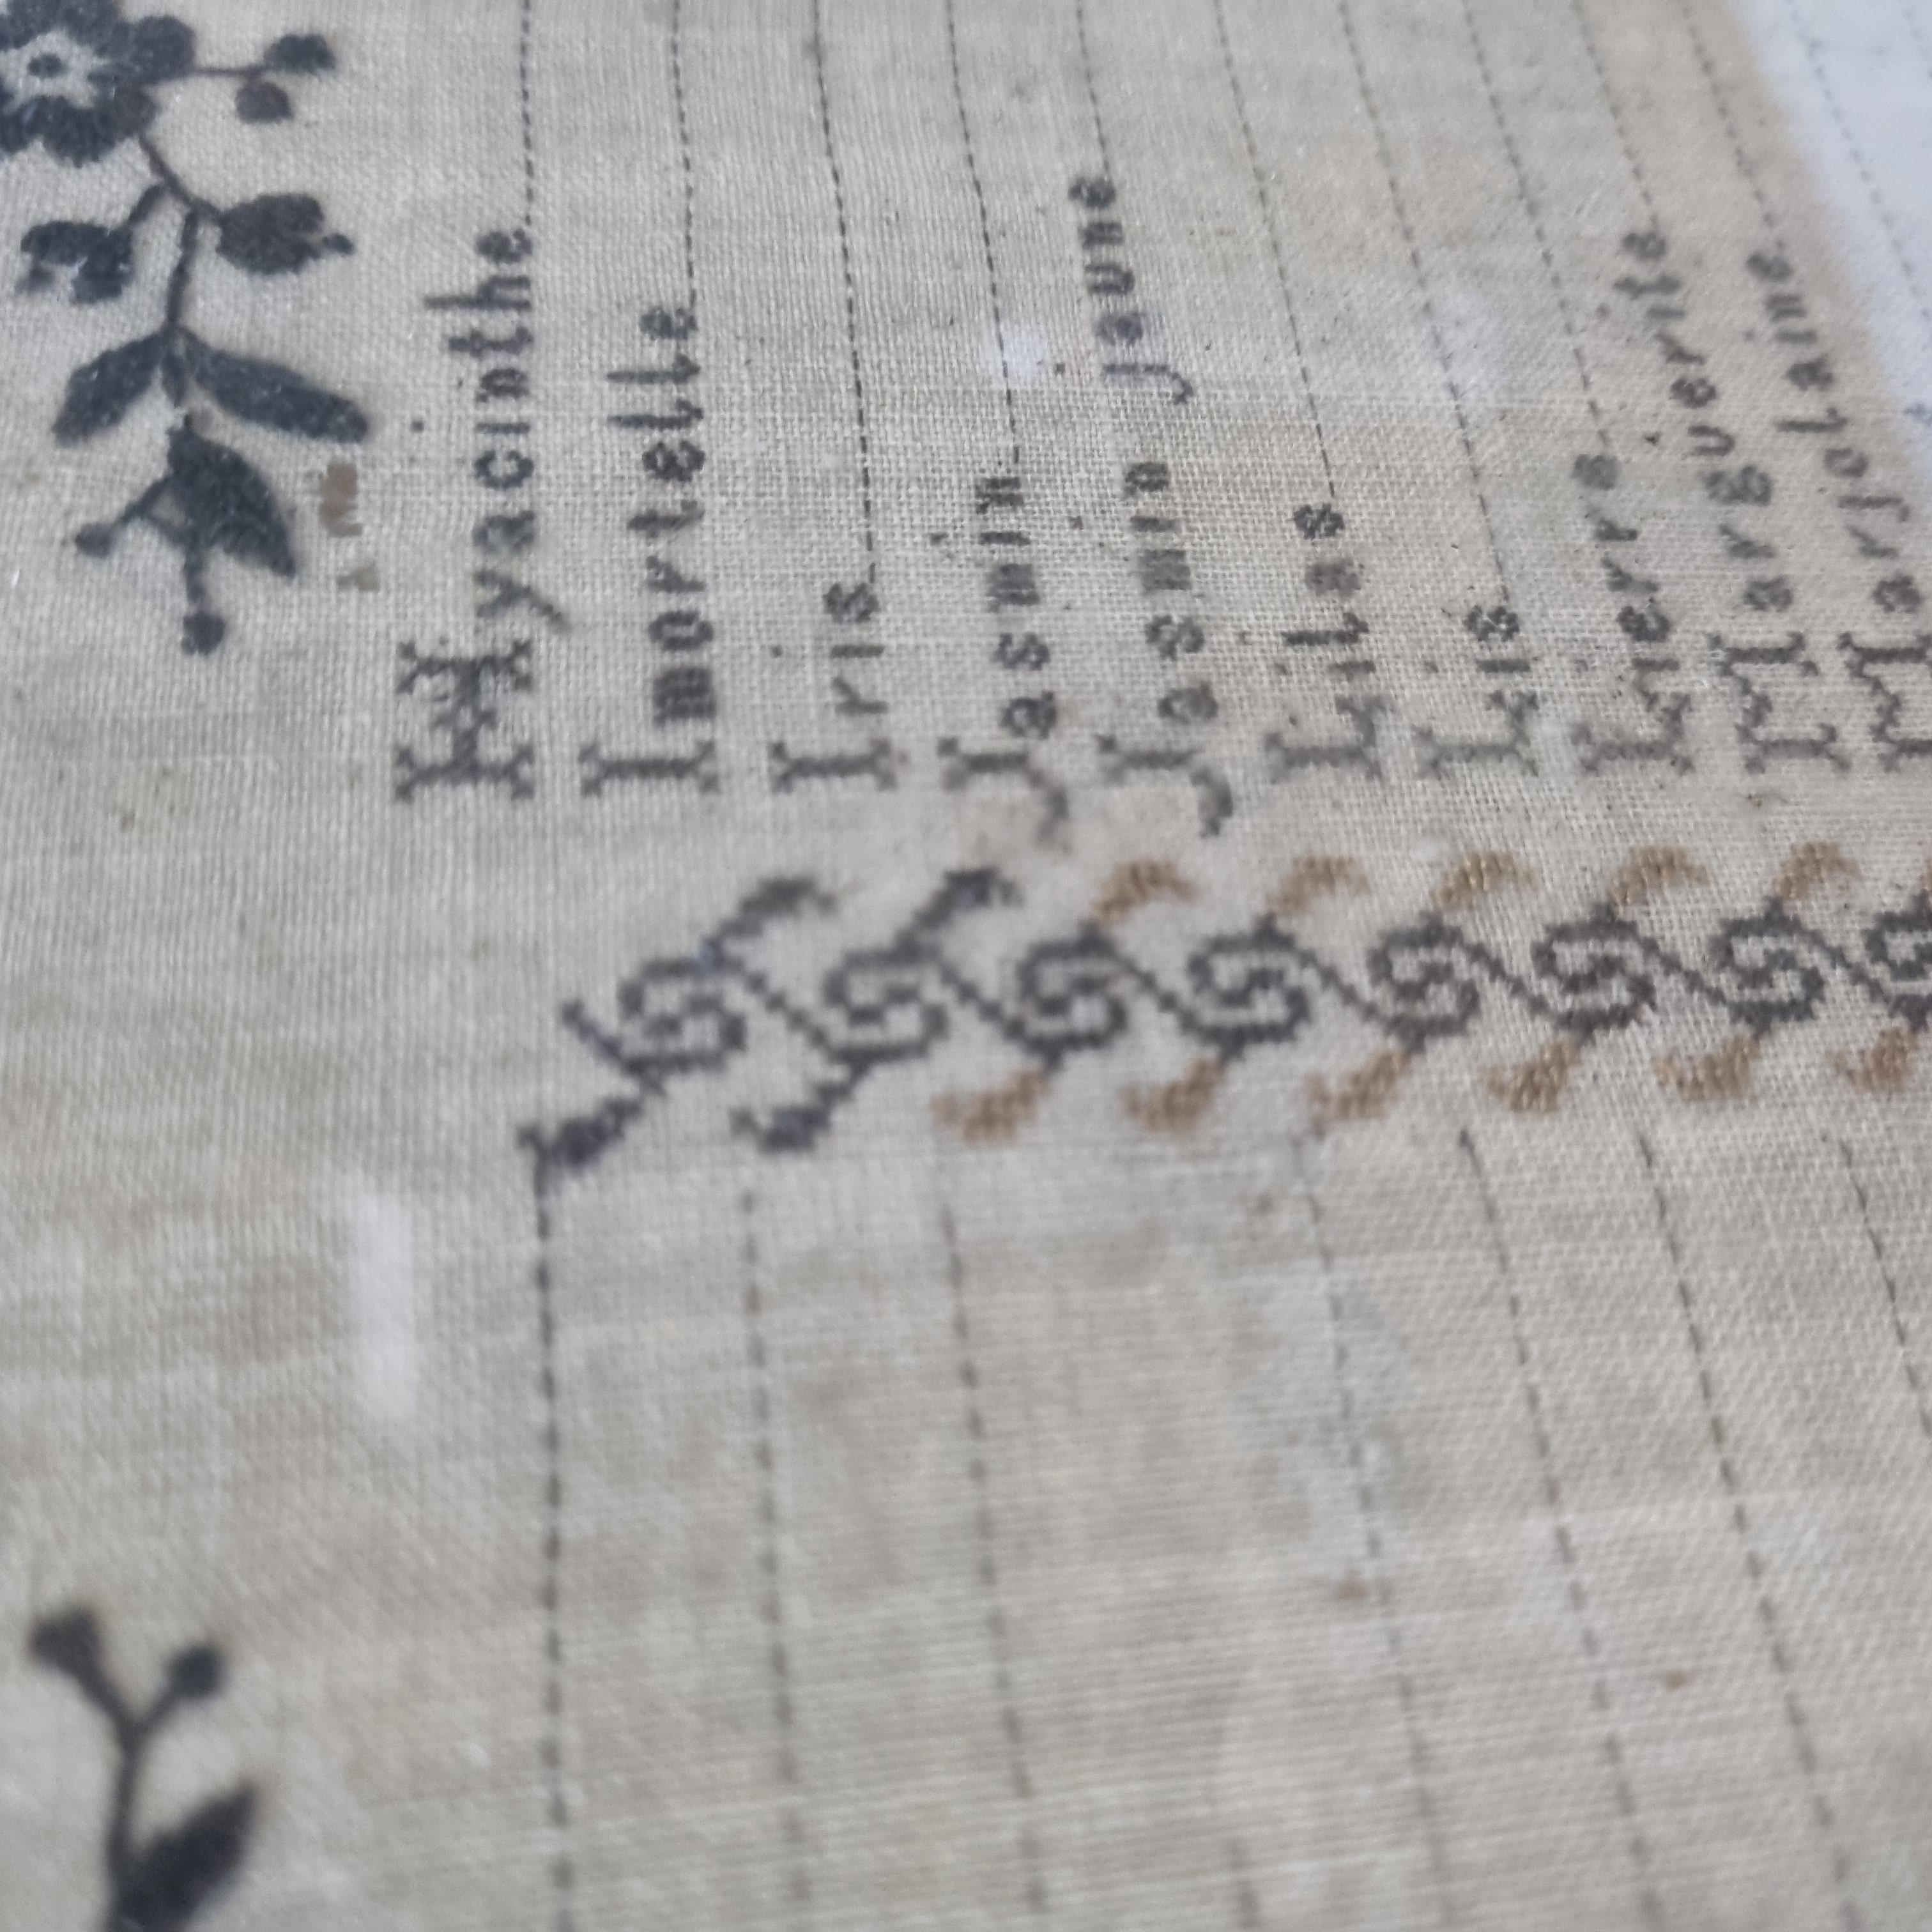 Hyacinthe
Imortelle
Iris
Jasmin
Jasmin jaune
Lilas
Lis
Lierre
Marguerite
Marjolaine